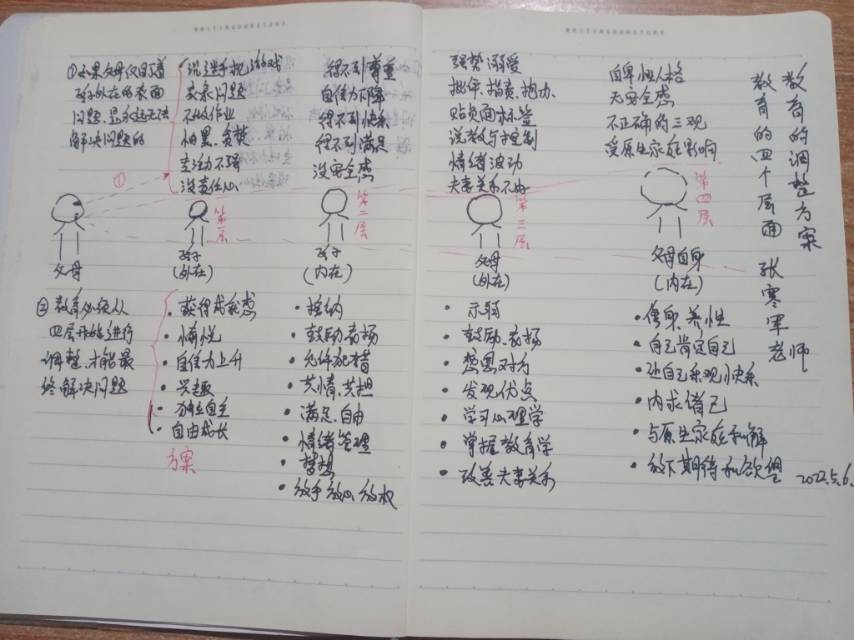 教育的调整方案
教育的四个层面 张寒军老师
①如果父母仅盯着
孩子外在的表面
问题,是永远无法
解决问题的
沉迷手机、游戏
交亲问题
不做作业
怕黑、贪赞
主动不强
没责任心
得不到尊重
自信力下降
得不到快乐
得不到满足
没安全感
强势溺爱
批评、指责、抱怨、
贴负面标签
说教与控制
情绪波动
夫妻关系不好
自卑性人格
无安全感
不正确的三观
受原生家庭影响
①
第一层
第二层
第三层
第四层
父母
孩子
(外在)
孩子
(内在)
父母
(外在)
父母自身
(内在)
②教育必须从
四层开始进行
调整,才能最
终解决问题
·获得成就感
·愉悦
·自信力上升
·兴趣
·独立自主
·自由成长
方案
·接纳
·鼓励、表扬
·允许犯错
·共情、共担
·满足、自由
·情绪管理
·梦想
·放手 放心 放权
·示弱
·鼓励、表扬
·感恩对方
·发现优点
·学习心理学
·掌握教育学
·改善夫妻关系
·修身、养性
·自己肯定自己
·让自己乐观、快乐
·内求诸己
·与原生家庭和解
·放下期待和欲望
2022.5.6.